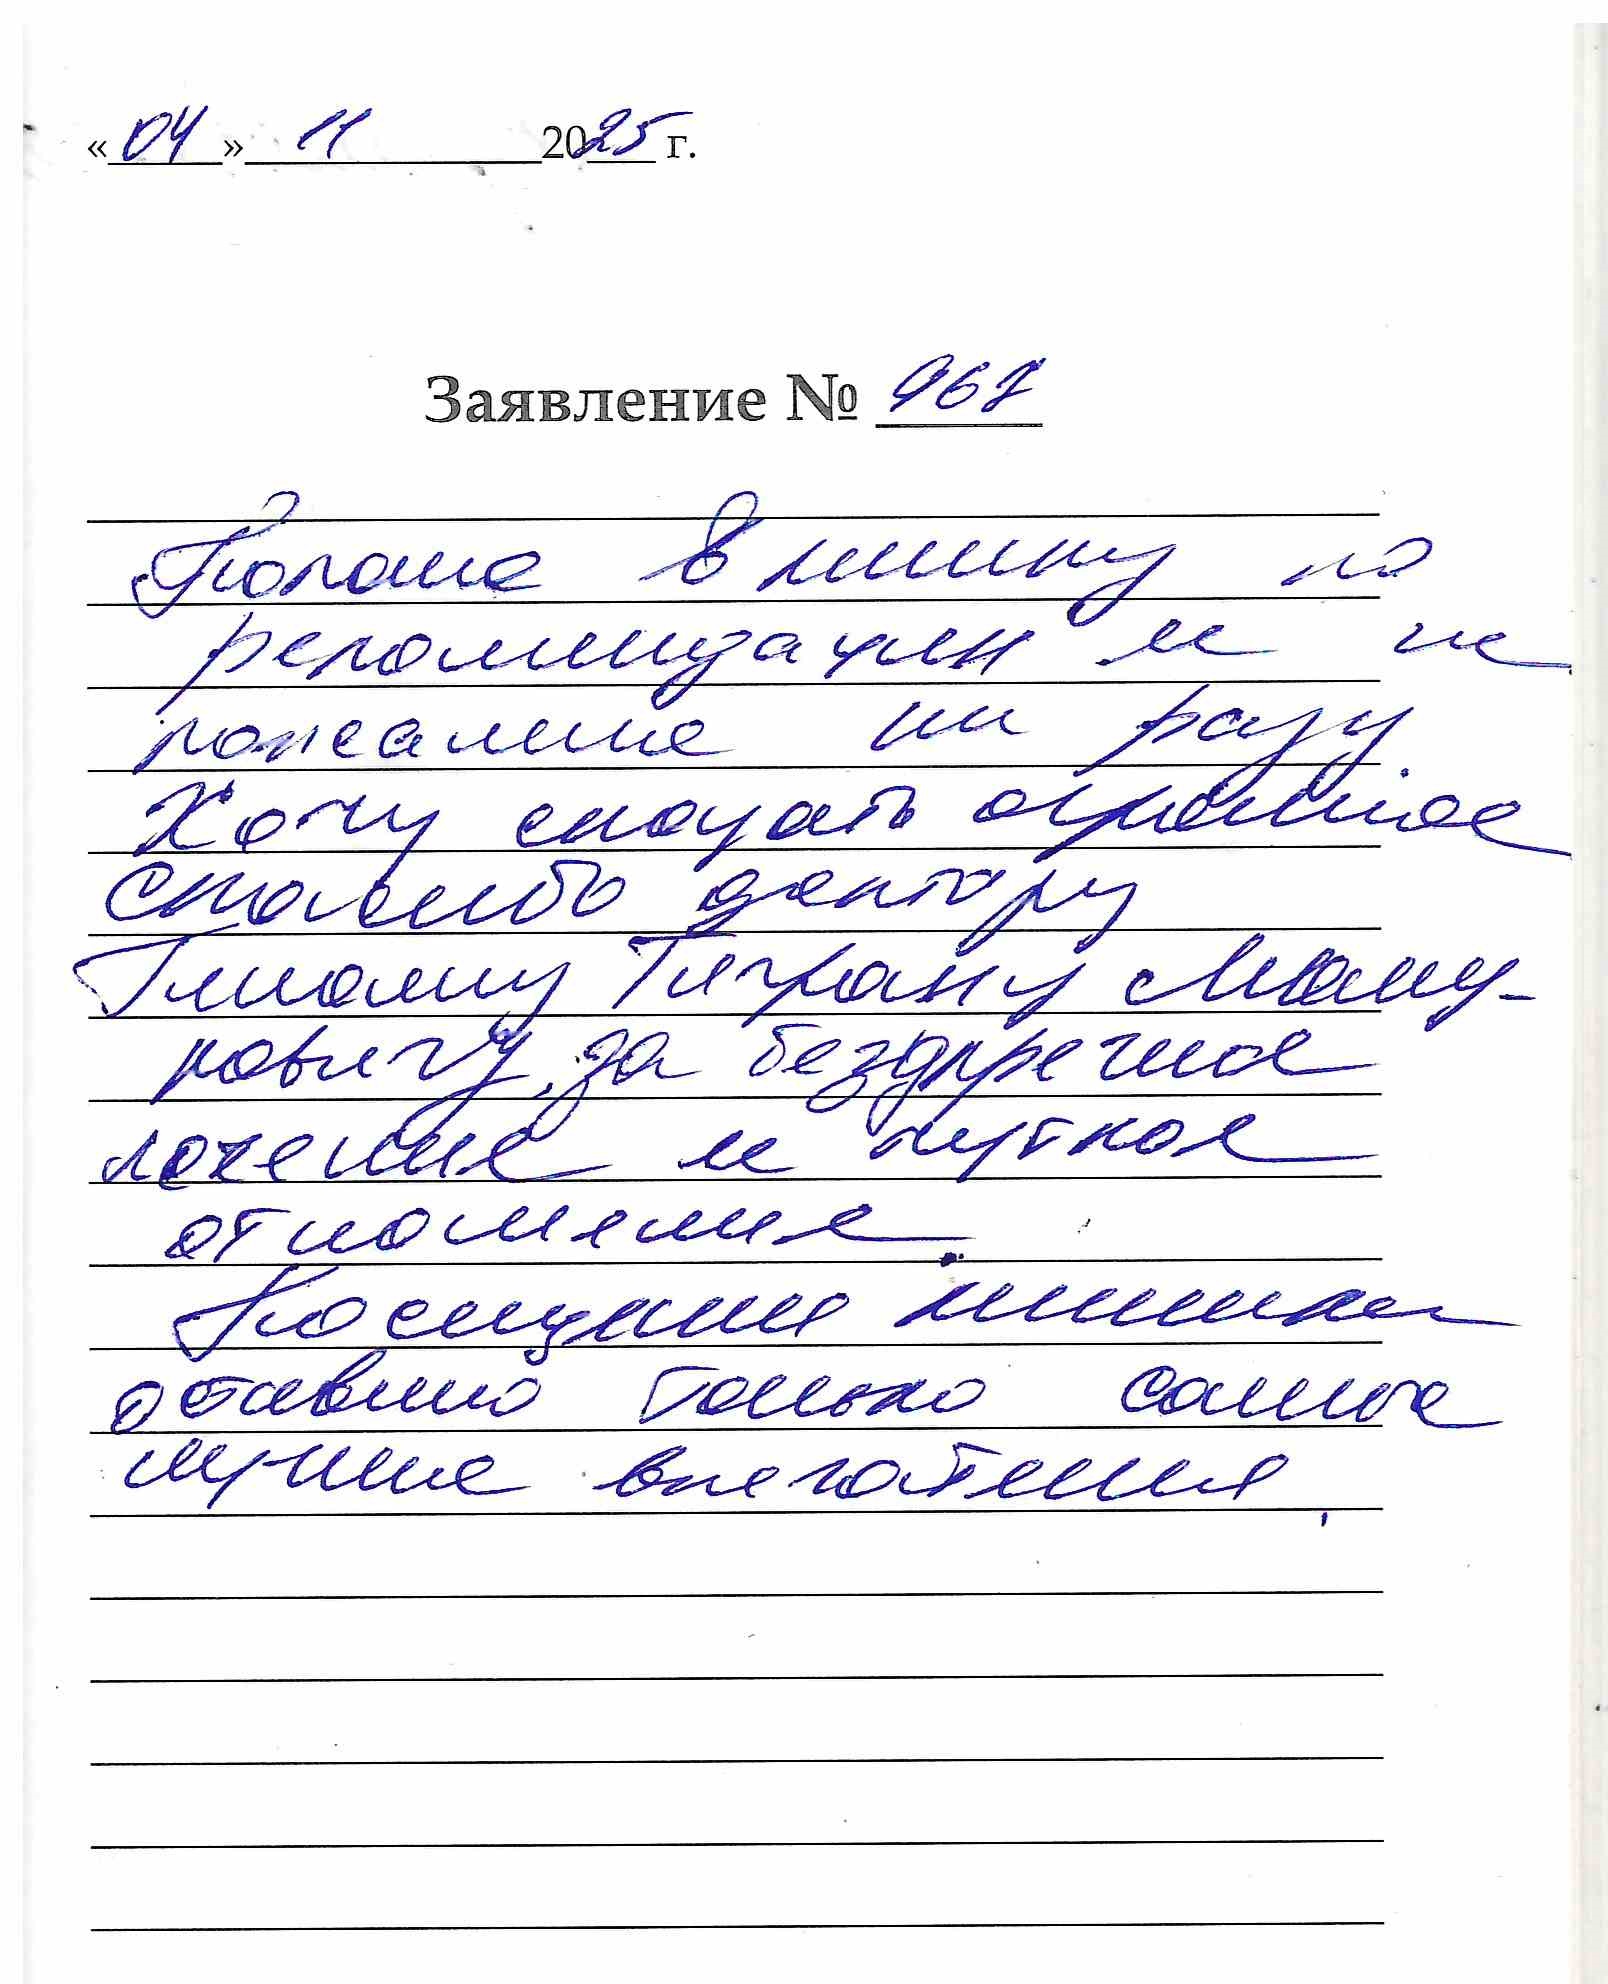 «04» 11 2025 г.
Заявление № 967
Попала в клинику по
рекомендации и не
пожалела ни разу
Хочу сказать огромное
спасибо доктору
Тиграну
за бездпречное
лечение и чуткое
отношение.
Посещение клиники
оставило только самые
лучшие впечатления.